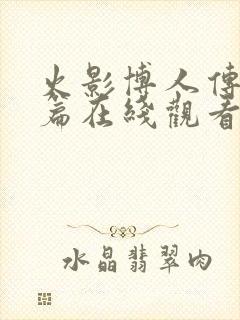 火影博人傳
篇在綫觀看
水晶翡翠肉